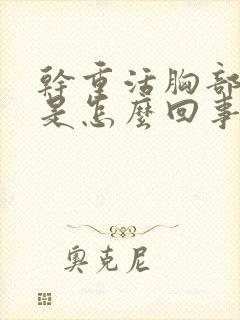 幹重活胸部
是怎麼回事
奧克尼